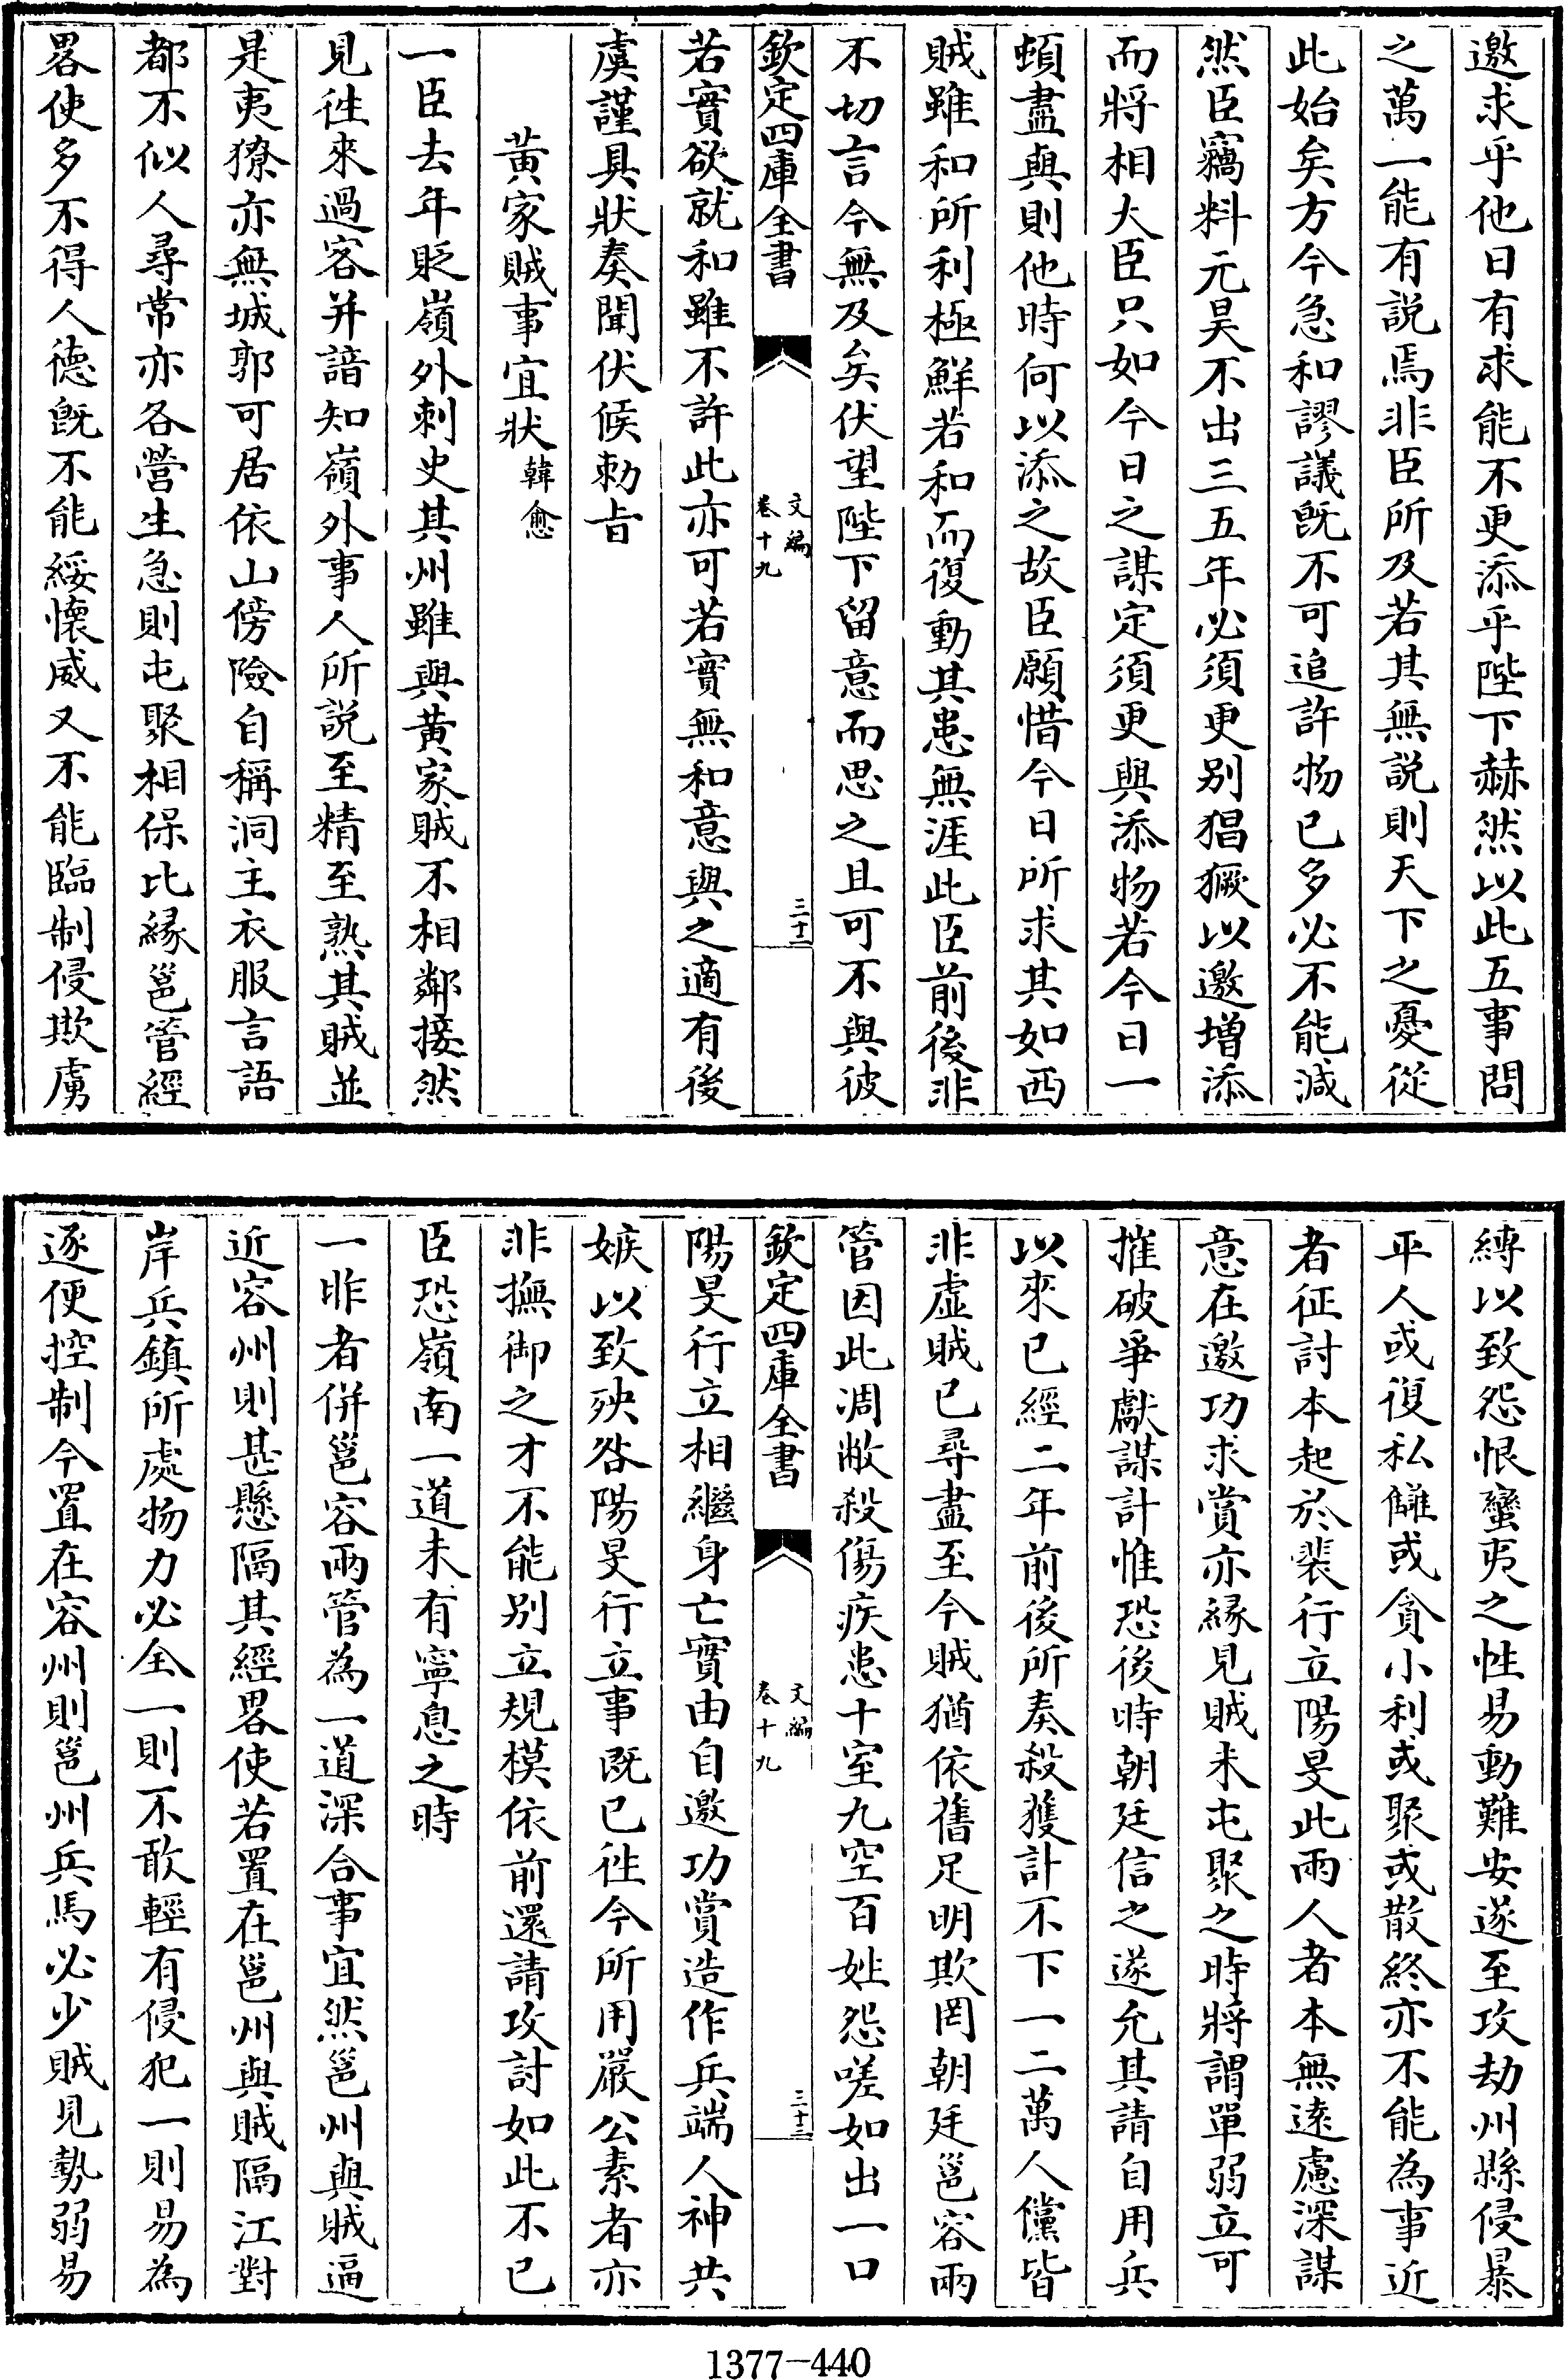 邀求乎他日有求能不更添乎陛下赫然以此五事問
之萬一能有説焉非臣所及若其無説則天下之憂從
此始矣方今急和謬議旣不可追許物已多必不能減
然臣竊料元昊不出三五年必須更别猖獗以邀增添
而將相大臣只如今日之謀定須更與添物若今日一
頓盡與則他時何以添之故臣願惜今日所求其如西
賊雖和所利極鮮若和而復動其患無涯此臣前後非
不切言今無及矣伏望陛下留意而思之且可不與彼
欽定四庫全書
文編
卷十九
三十二
若實欲就和雖不許此亦可若實無和意與之適有後
虞謹具狀奏聞伏候勅㫖
黄家賊事宜狀 韓愈
一臣去年貶嶺外刺史其州雖與黄家賊不相鄰接然
見往來過客并諳知嶺外事人所説至精至熟其賊並
是夷獠亦無城郭可居依山傍險自稱洞主衣服言語
都不似人尋常亦各營生急則屯聚相保比縁邕管經
畧使多不得人德旣不能綏懷威又不能臨制侵欺虜
縛以致怨恨蠻夷之性易動難安遂至攻劫州縣侵暴
平人或復私讎或貪小利或聚或散終亦不能為事近
者征討本起於裴行立陽旻此兩人者本無逺慮深謀
意在邀功求賞亦縁見賊未屯聚之時將謂單弱立可
摧破爭獻謀計惟恐後時朝廷信之遂允其請自用兵
以來已經二年前後所奏殺獲計不下一二萬人儻皆
非虚賊已尋盡至今賊猶依舊足明欺罔朝廷邕容兩
管因此凋敝殺傷疾患十室九空百姓怨嗟如出一口
欽定四庫全書
文編
卷十九
三十三
陽旻行立相繼身亡實由自邀功賞造作兵端人神共
嫉以致殃咎陽旻行立事既已往今所用嚴公素者亦
非撫御之才不能别立規模依前還請攻討如此不已
臣恐嶺南一道未有寧息之時
一昨者併邕容兩管為一道深合事宜然邕州與賊逼
近容州則甚懸隔其經畧使若置在邕州與賊隔江對
岸兵鎮所處物力必全一則不敢輕有侵犯一則易為
逐便控制今置在容州則邕州兵馬必少賊見勢弱易
1377-440